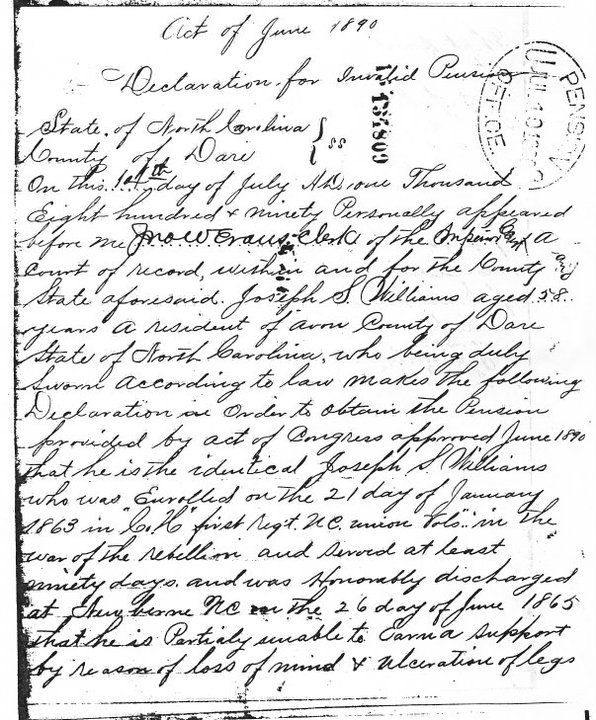 Act of June 1890
Declaration for Invalid Pension
134809
PENSION
OFFICE
State of North Carolina
County of Dare } ss
On this day of July AD one Thousand
Eight hundred & ninety Personally appeared
before me Jno W Evans Clerk of the Superior Court a
Court of record, within and for the County and
State aforesaid. Joseph S. Williams aged 58
years a resident of avon County of Dare
State of North Carolina, who being duly
Sworn According to law makes the following
Declaration in Order to obtain the Pension
provided by act of Congress approved June 1890
that he is the identical Joseph S Williams
who was Enrolled on the 21 day of January
1863 in "Co. H" first regt. N.C. union Vols". in the
war of the rebellion and served at least
ninety days. and was Honorably discharged
at Newberne NC on the 26 day of June 1865
that he is Partialy unable to Earn a support
by reason of loss of mind & ulceration of legs